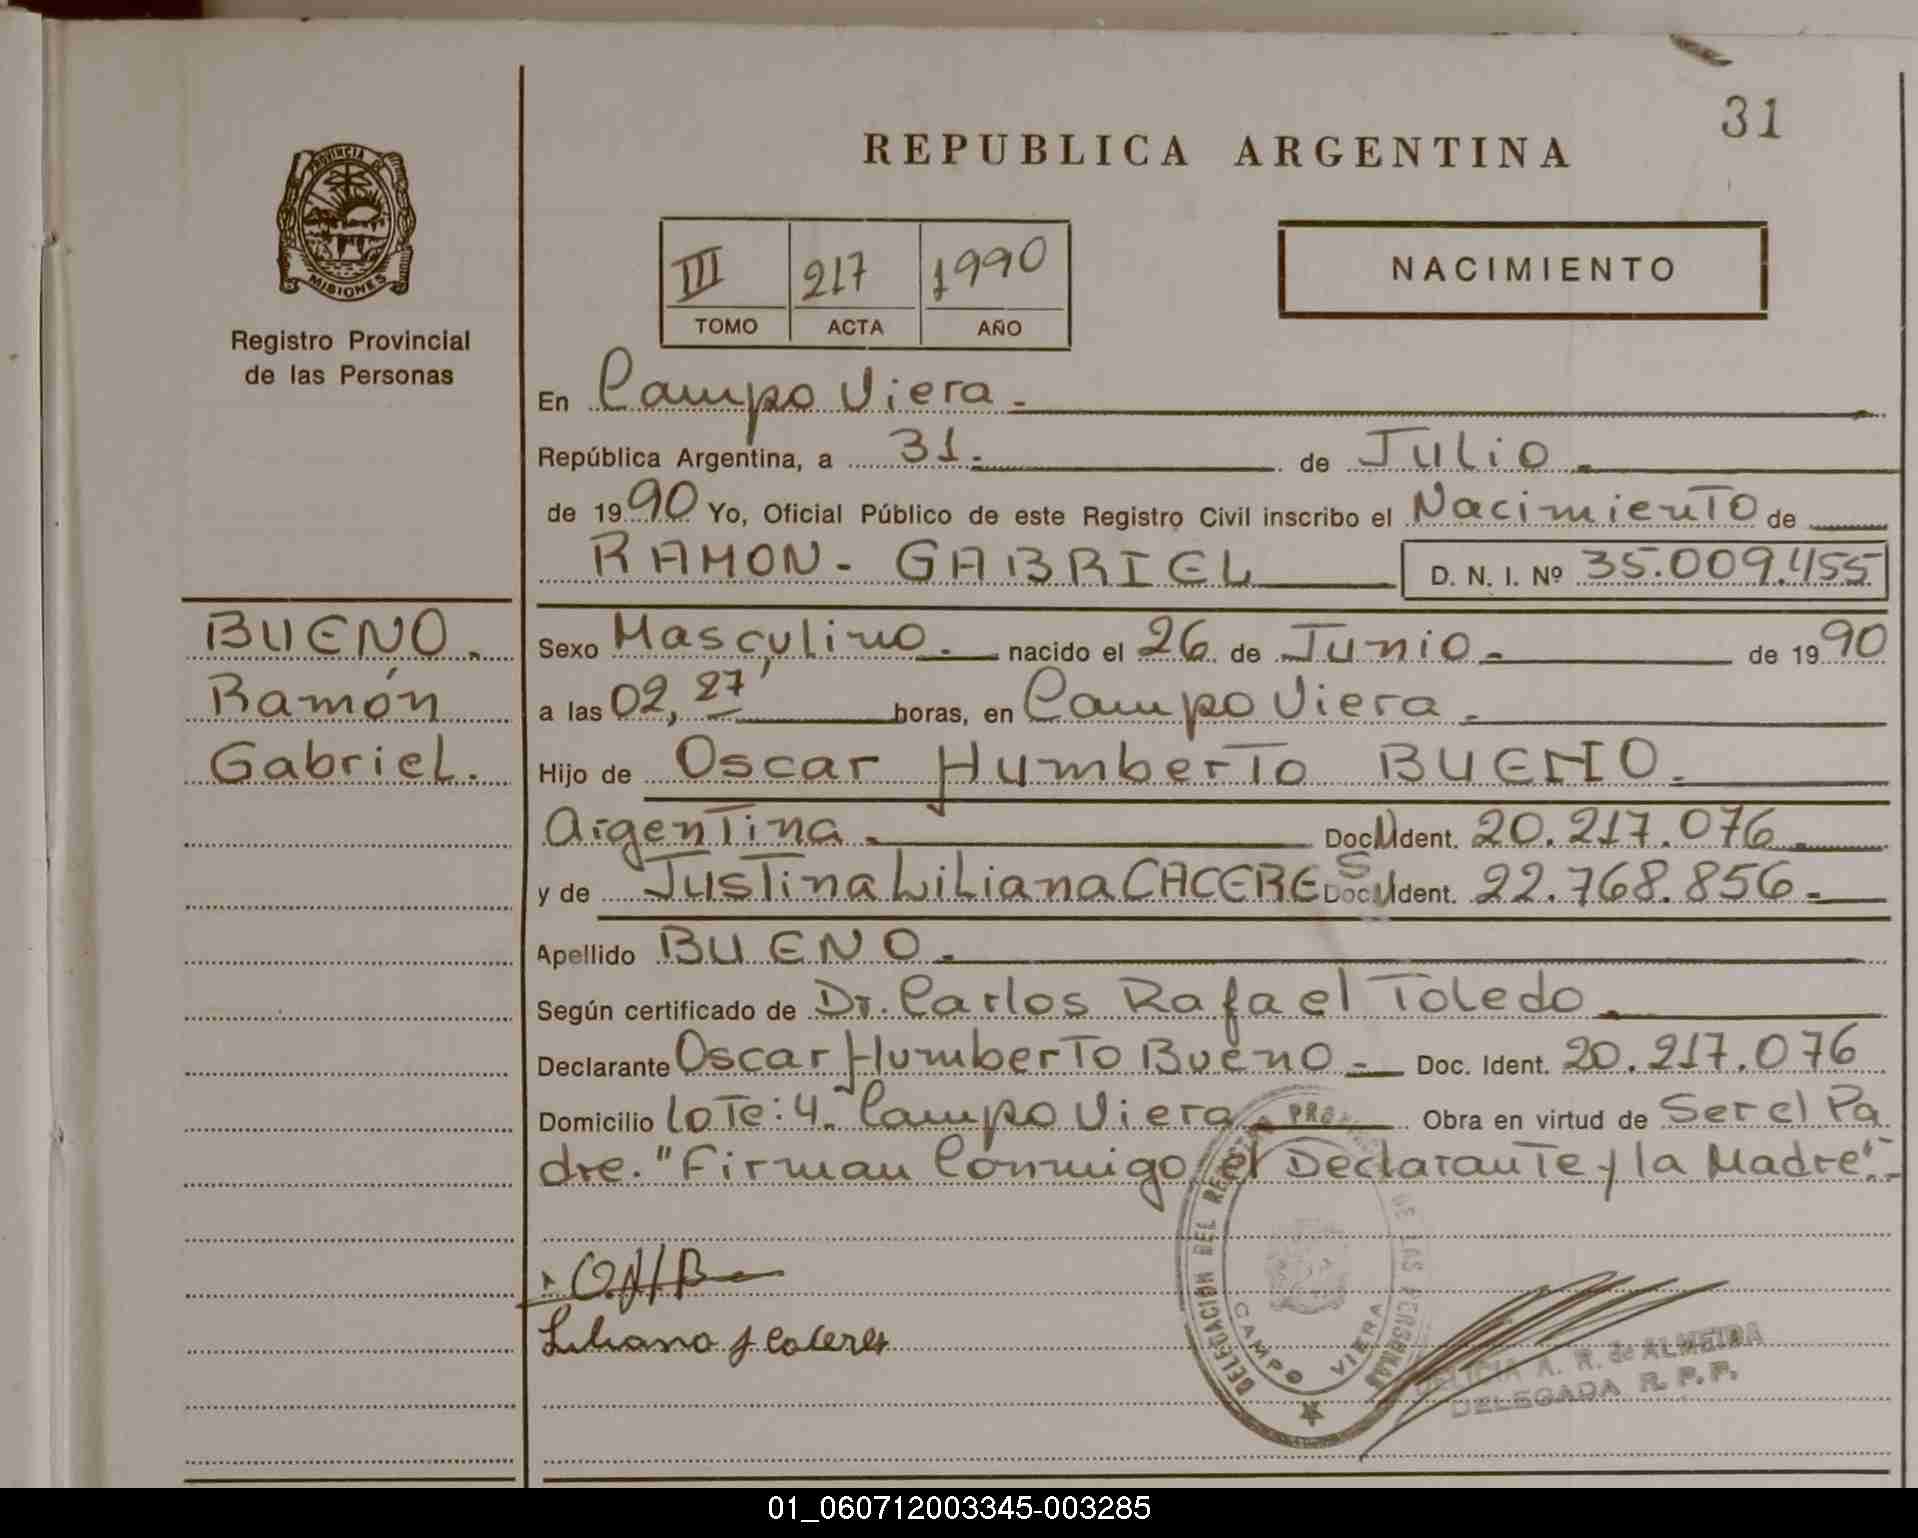 31
REPUBLICA ARGENTINA
PROVINCIA DE
MISIONES
Registro Provincial
de las Personas
III 217 1990
TOMO ACTA AÑO
NACIMIENTO
En Campo Viera.
República Argentina, a 31. de Julio
de 1990 Yo, Oficial Público de este Registro Civil inscribo el Nacimiento de
RAMON- GABRIEL D. N. I. Nº 35.009.455
BUENO.
Ramón
Gabriel.
Sexo Masculino. nacido el 26 de Junio. de 1990
a las 02,27' horas, en Campo Viera.
Hijo de Oscar Humberto BUENO.
Argentina. Doc. Ident. 20.217.076
y de Justina Liliana CACERES Doc. Ident. 22.768.856.
Apellido BUENO.
Según certificado de Dr. Carlos Rafael Toledo
Declarante Oscar Humberto Bueno Doc. Ident. 20.217.076
Domicilio Lote: 4. Campo Viera Obra en virtud de Ser el Pa
dre. "Firman Conmigo el Declarante y la Madre".-
O.H.B
Liliana J Caceres
DELEGACION DEL REGISTRO PROVINCIAL DE LAS PERSONAS
CAMPO VIERA
DELICIA A. R. de ALMEIDA
DELEGADA R. P. P.
01_060712003345-003285